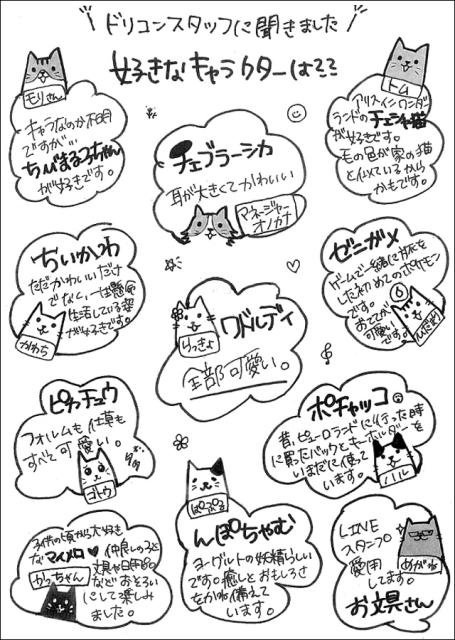 ドリコンスタッフに聞きました
好きなキャラクターは??
モリさん
キャラなのか不明
ですが…
ちびまる子ちゃん
が好きです。
トム
アリスインワンダー
ランドのチェシャ猫
が好きです。
毛の色が家の猫
と似ているから
かもです。
チェブラーシカ
耳が大きくてかわいい
マネージャー
オノカナ
ちいかわ
ただかわいいだけ
でなく、一生懸命
生活している姿
が好きです。
かわち
ゼニガメ
ゲームで一緒に旅を
した初めてのポケモン
です。
おててが
可愛い
です。
ワドルディ
らっきょ
全部可愛い。
ピカチュウ
フォルムも仕草も
すべて可愛い。
ゴトウ
ポチャッコ
昔、ピューロランドに行った時
に買ったバックとキーホルダーを
いまだに使って
います。
ハル
子供の頃から大好き
なマイメロ♥仲良しの子と
文具や日用品
などおそろい
にして楽しみ
ました。
かっちゃん
ぱるぷる
んぽちゃむ
ヨーグルトの妖精らしい
です。癒しとおもしろさ
をかね備えて
います。
LINE
スタンプ
愛用
してます。
お文具さん
めがね